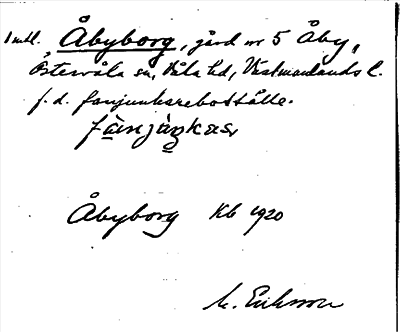 Inbl. Åbyborg, gård nr 5 Åby,
Östervåla sn, Våla hd, Västmanlands l.
f. d. fanjunkareboställe.
fànjàŋkas,
Åbyborg Kb 1920
M. Eriksson